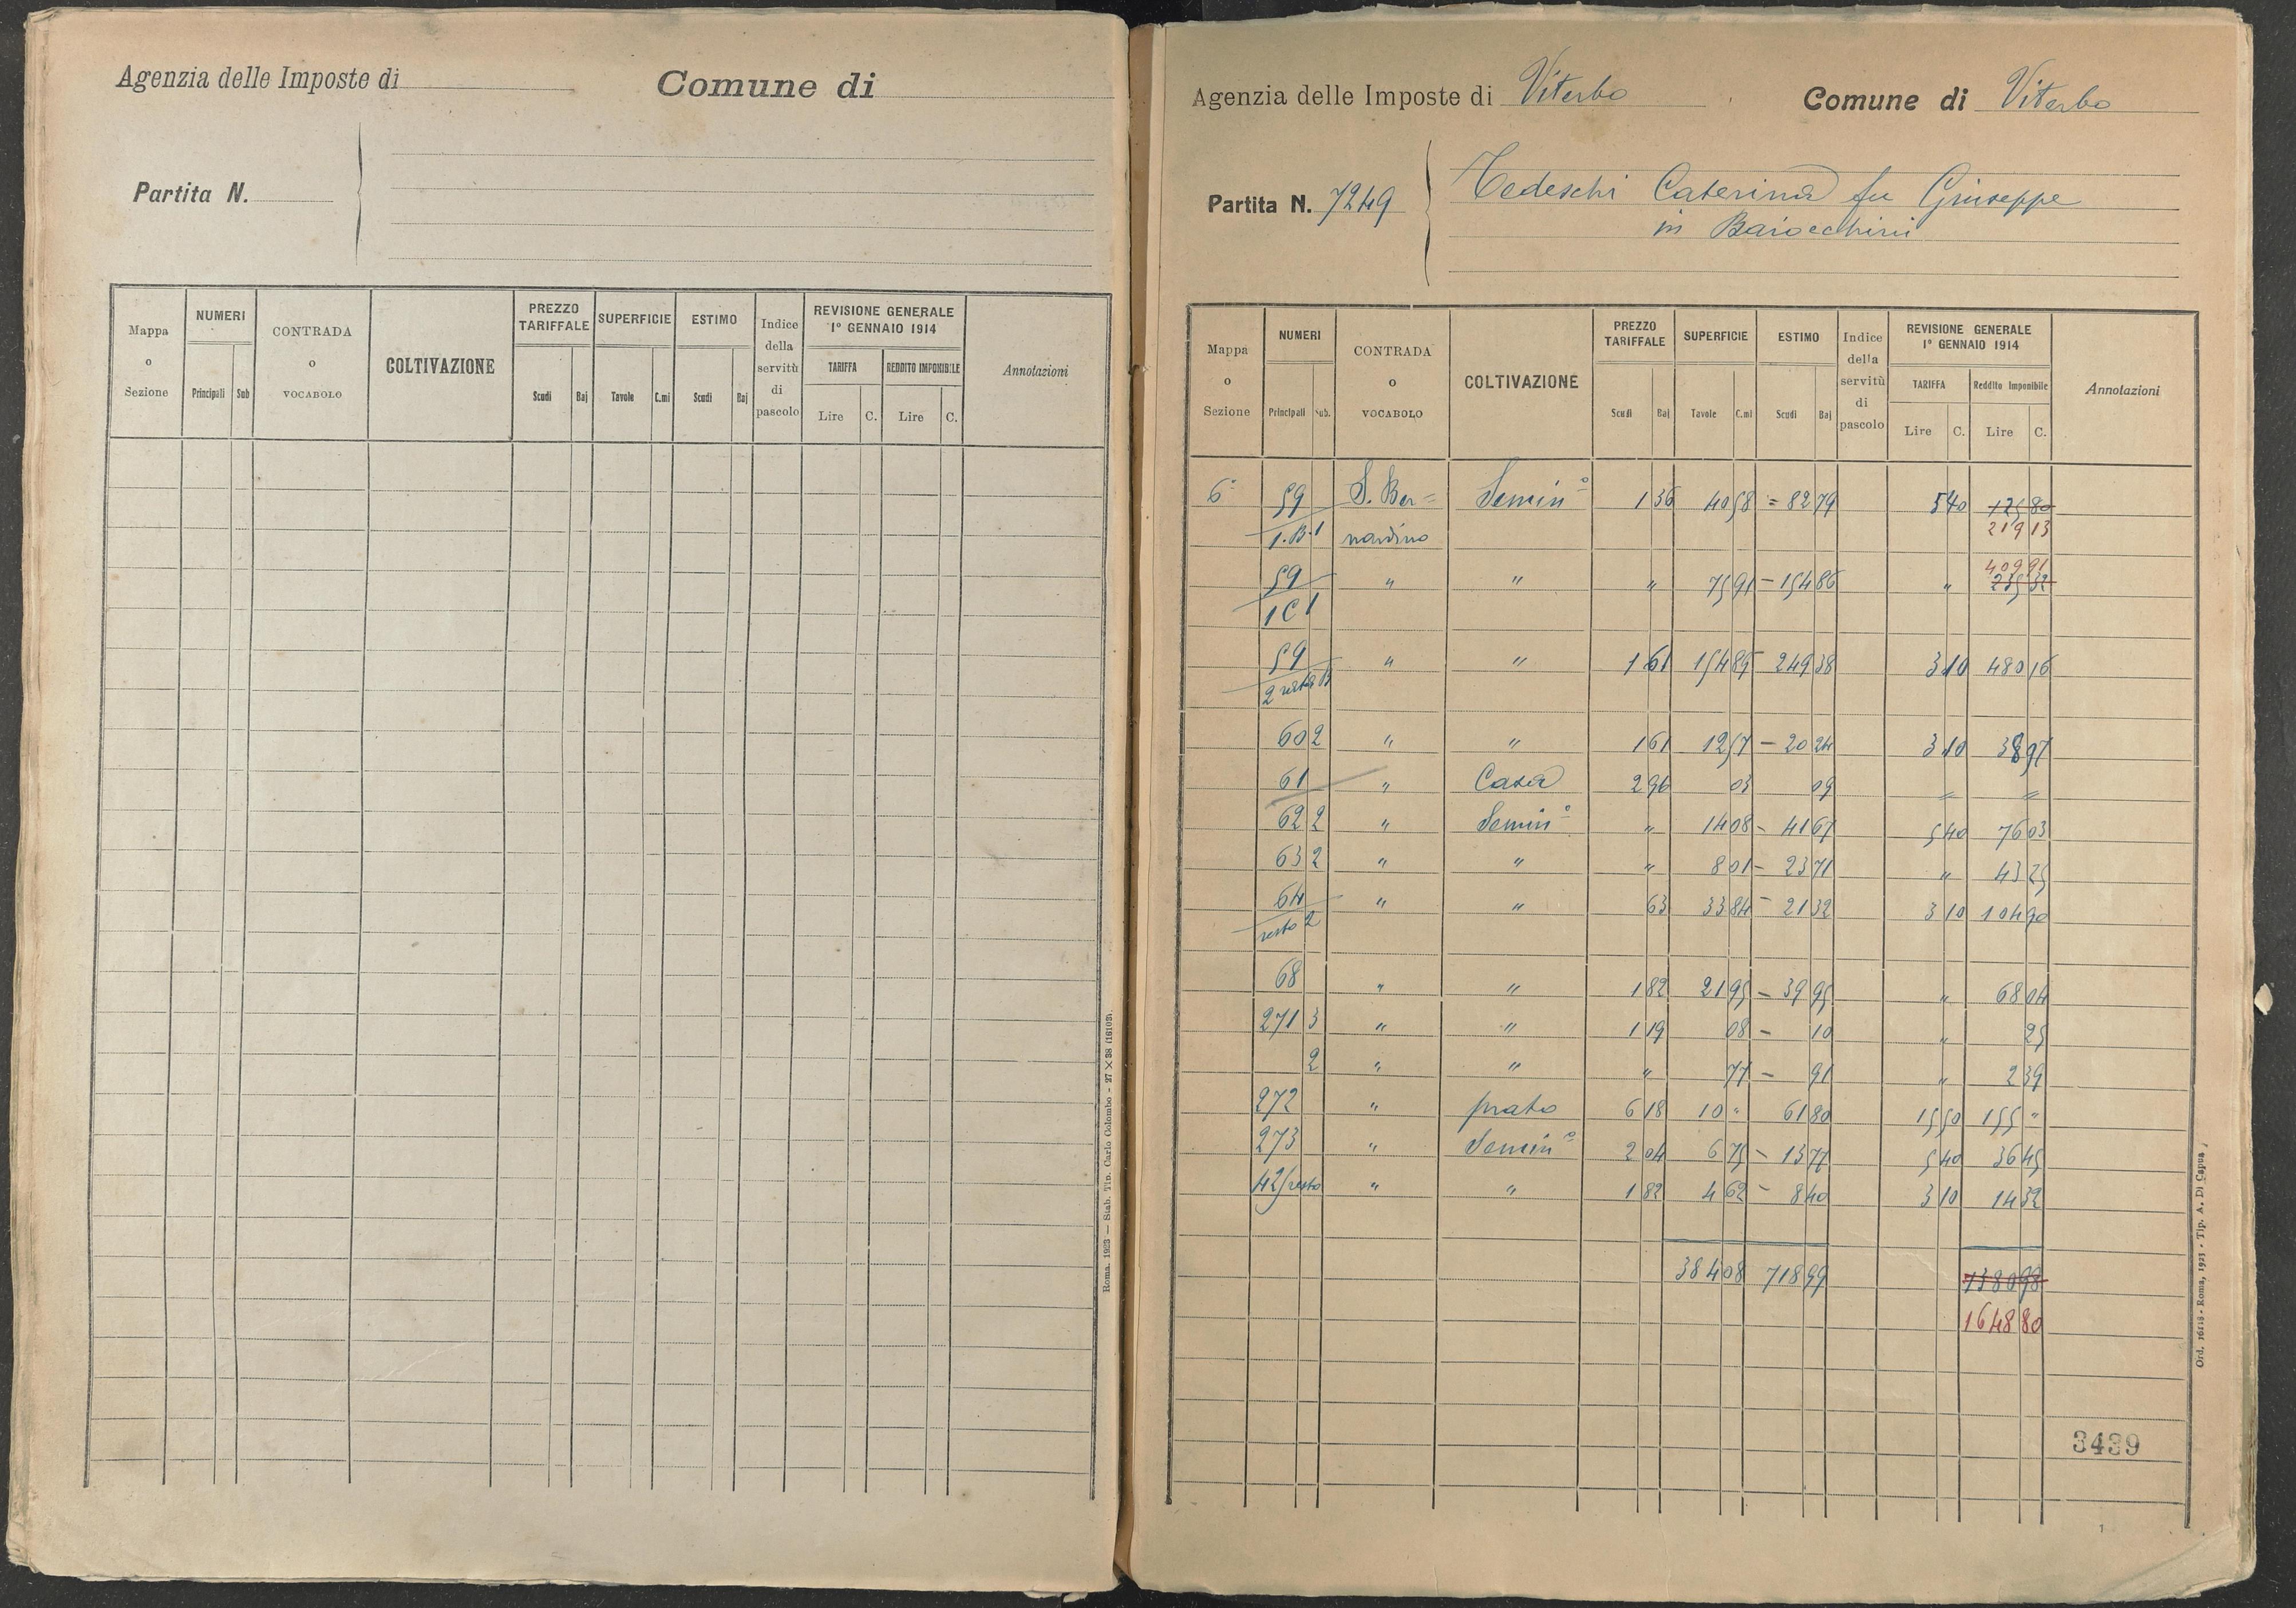 Agenzia delle Imposte di
Comune di
Partita N.
Mappa o Sezione
NUMERI
Principali Sub
CONTRADA o VOCABOLO
COLTIVAZIONE
PREZZO TARIFFALE
Scudi Baj
SUPERFICIE
Tavole C.mi
ESTIMO
Scudi Baj
Indice della servitù di pascolo
REVISIONE GENERALE
1º GENNAIO 1914
TARIFFA REDDITO IMPONIBILE
Lire C. Lire C.
Annotazioni
Roma. 1923 — Stab. Tip. Carlo Colombo - 27 X 38 (16103).
Agenzia delle Imposte di Viterbo
Comune di Viterbo
Partita N. 7249
Tedeschi Caterina fu Giuseppe
in Baiocchini
Mappa o Sezione
NUMERI
Principali Sub.
CONTRADA o VOCABOLO
COLTIVAZIONE
PREZZO TARIFFALE
Scudi Baj
SUPERFICIE
Tavole C.mi
ESTIMO
Scudi Baj
Indice della servitù di pascolo
REVISIONE GENERALE
1º GENNAIO 1914
TARIFFA Reddito Imponibile
Lire C. Lire C.
Annotazioni
6ª 59 S. Ber= Semin.º 1 36 40 58 = 82 79 5 40 125 80
1.B.1 nardino 219 13
409 91
59 " " " 75 91 - 154 86 " 235 32
1 C 1
59 " " 1 61 154 89 - 249 38 3 10 480 16
2 resto B
60 2 " " 1 61 12 57 - 20 24 3 10 38 97
61 " Casa 2 96 03 09 = =
62 2 " Semin.º " 14 08 - 41 67 5 40 76 03
63 2 " " " 8 01 - 23 71 " 43 25
64 " " 63 33 84 - 21 32 3 10 104 90
resto 2
68 " " 1 82 21 95 - 39 95 " 68 04
271 3 " " 1 19 08 - 10 " 25
2 " " " 77 - 91 " 2 39
272 " prato 6 18 10 " 61 80 15 50 155 "
273 " Semin.º 2 04 6 75 - 13 77 5 40 36 45
42/resto " " 1 82 4 62 - 8 40 3 10 14 32
384 08 718 99 1380 98
1648 80
3439
Ord. 16118 - Roma, 1923 - Tip. A. Di Capua